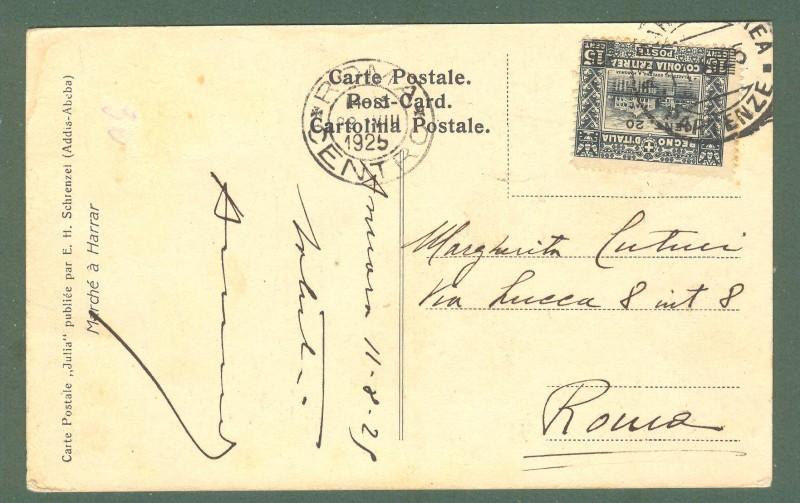 Carte Postale „Julia" publiée par E. H. Schrenzel (Addis-Abeba)
Marché à Harrar
Carte Postale.
Post-Card.
Cartolina Postale.
ROMA
VIII
1925
CENTRO
Asmara 11-8-25
Saluti
Margherita Cuturi
Via Lucca 8 int 8
Roma
REGNO D'ITALIA
COLONIA ERITREA
POSTE
15 CENT
20